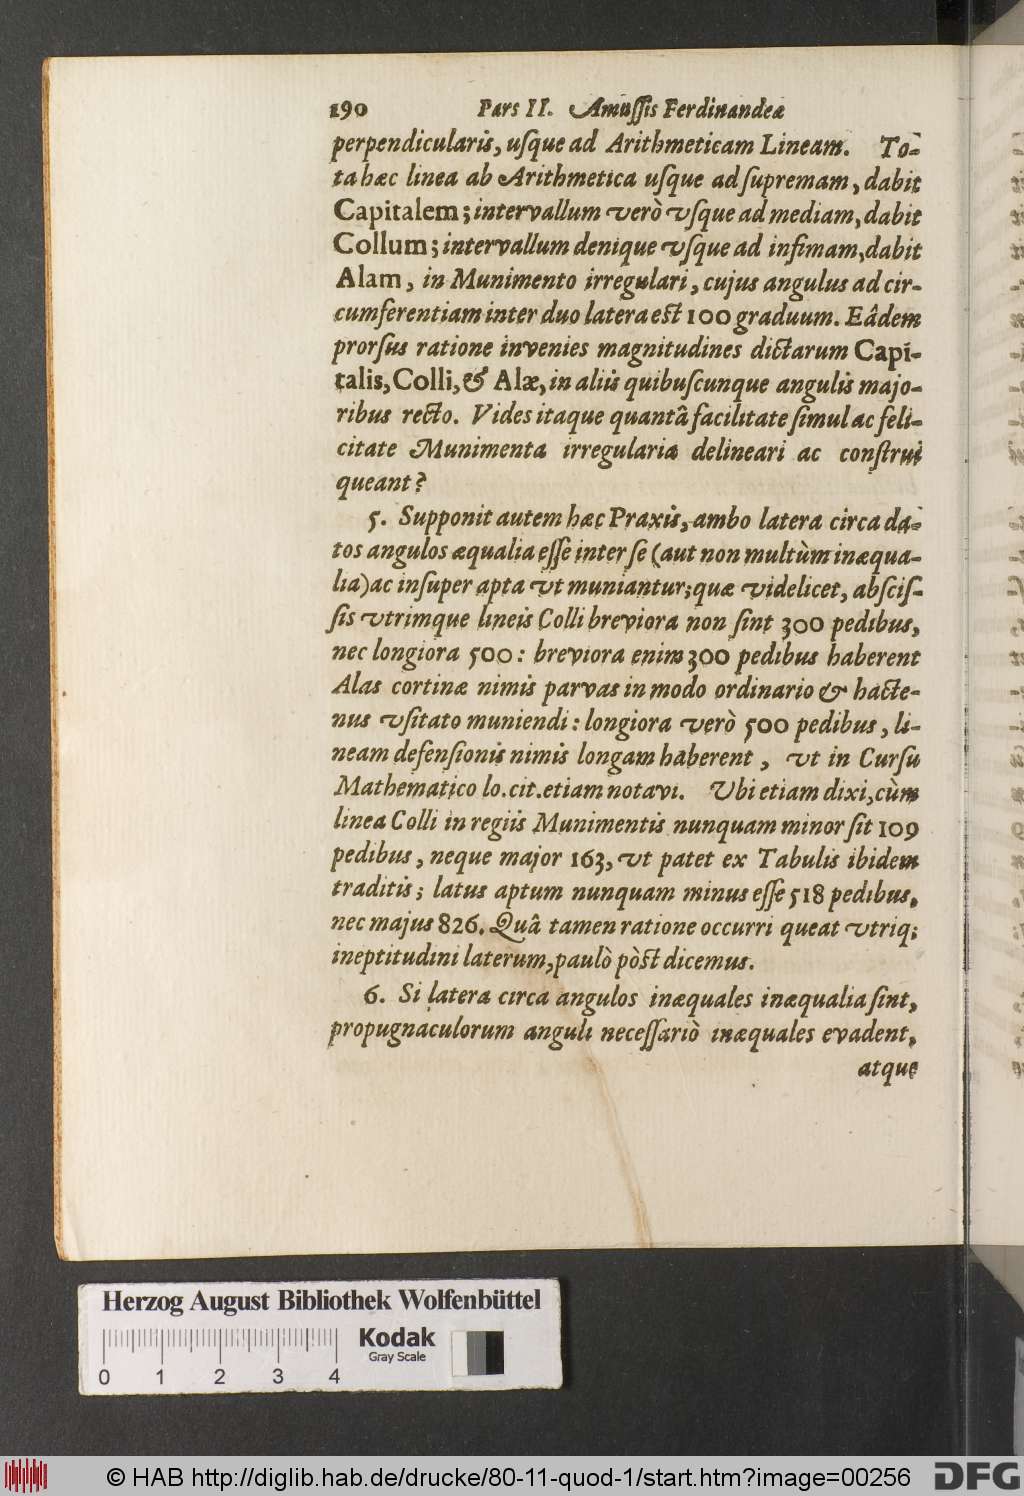 190 Pars II. Amussis Ferdinandeæ
perpendicularis, uſque ad Arithmeticam Lineam. To-
ta hæc linea ab Arithmetica uſque ad ſupremam, dabit
Capitalem; intervallum verò vſque ad mediam, dabit
Collum; intervallum denique vſque ad infimam, dabit
Alam, in Munimento irregulari, cujus angulus ad cir-
cumferentiam inter duo latera eſt 100 graduum. Eâdem
prorſus ratione invenies magnitudines dictarum Capi-
talis, Colli, & Alæ, in aliis quibuſcunque angulis majo-
ribus recto. Vides itaque quantâ facilitate ſimul ac feli-
citate Munimenta irregularia delineari ac conſtrui
queant?
5. Supponit autem hæc Praxis, ambo latera circa da-
tos angulos æqualia eſſe inter ſe (aut non multùm inæqua-
lia) ac inſuper apta vt muniantur; quæ videlicet, abſciſ-
ſis vtrimque lineis Colli breviora non ſint 300 pedibus,
nec longiora 500: breviora enim 300 pedibus haberent
Alas cortinæ nimis parvas in modo ordinario & hacte-
nus vſitato muniendi: longiora verò 500 pedibus, li-
neam defenſionis nimis longam haberent, vt in Curſu
Mathematico lo. cit. etiam notavi. Vbi etiam dixi, cùm
linea Colli in regiis Munimentis nunquam minor ſit 109
pedibus, neque major 163, vt patet ex Tabulis ibidem
traditis; latus aptum nunquam minus eſſe 518 pedibus,
nec majus 826. Quâ tamen ratione occurri queat vtriq;
ineptitudini laterum, paulò pòſt dicemus.
6. Si latera circa angulos inæquales inæqualia ſint,
propugnaculorum anguli neceſſariò inæquales evadent,
atque
Herzog August Bibliothek Wolfenbüttel
Kodak
Gray Scale
0 1 2 3 4
© HAB http://diglib.hab.de/drucke/80-11-quod-1/start.htm?image=00256
DFG